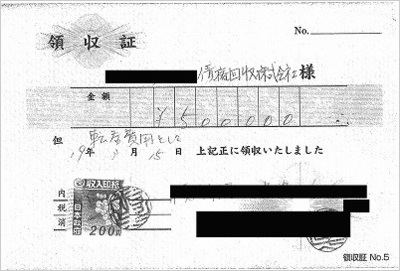 領収証
No.
債権回収株式会社様
金額 ¥500000
但 転居費用として
19年 3月 15日 上記正に領収いたしました
内
収入印紙
税
日本政府
消
200円
領収証 No.5